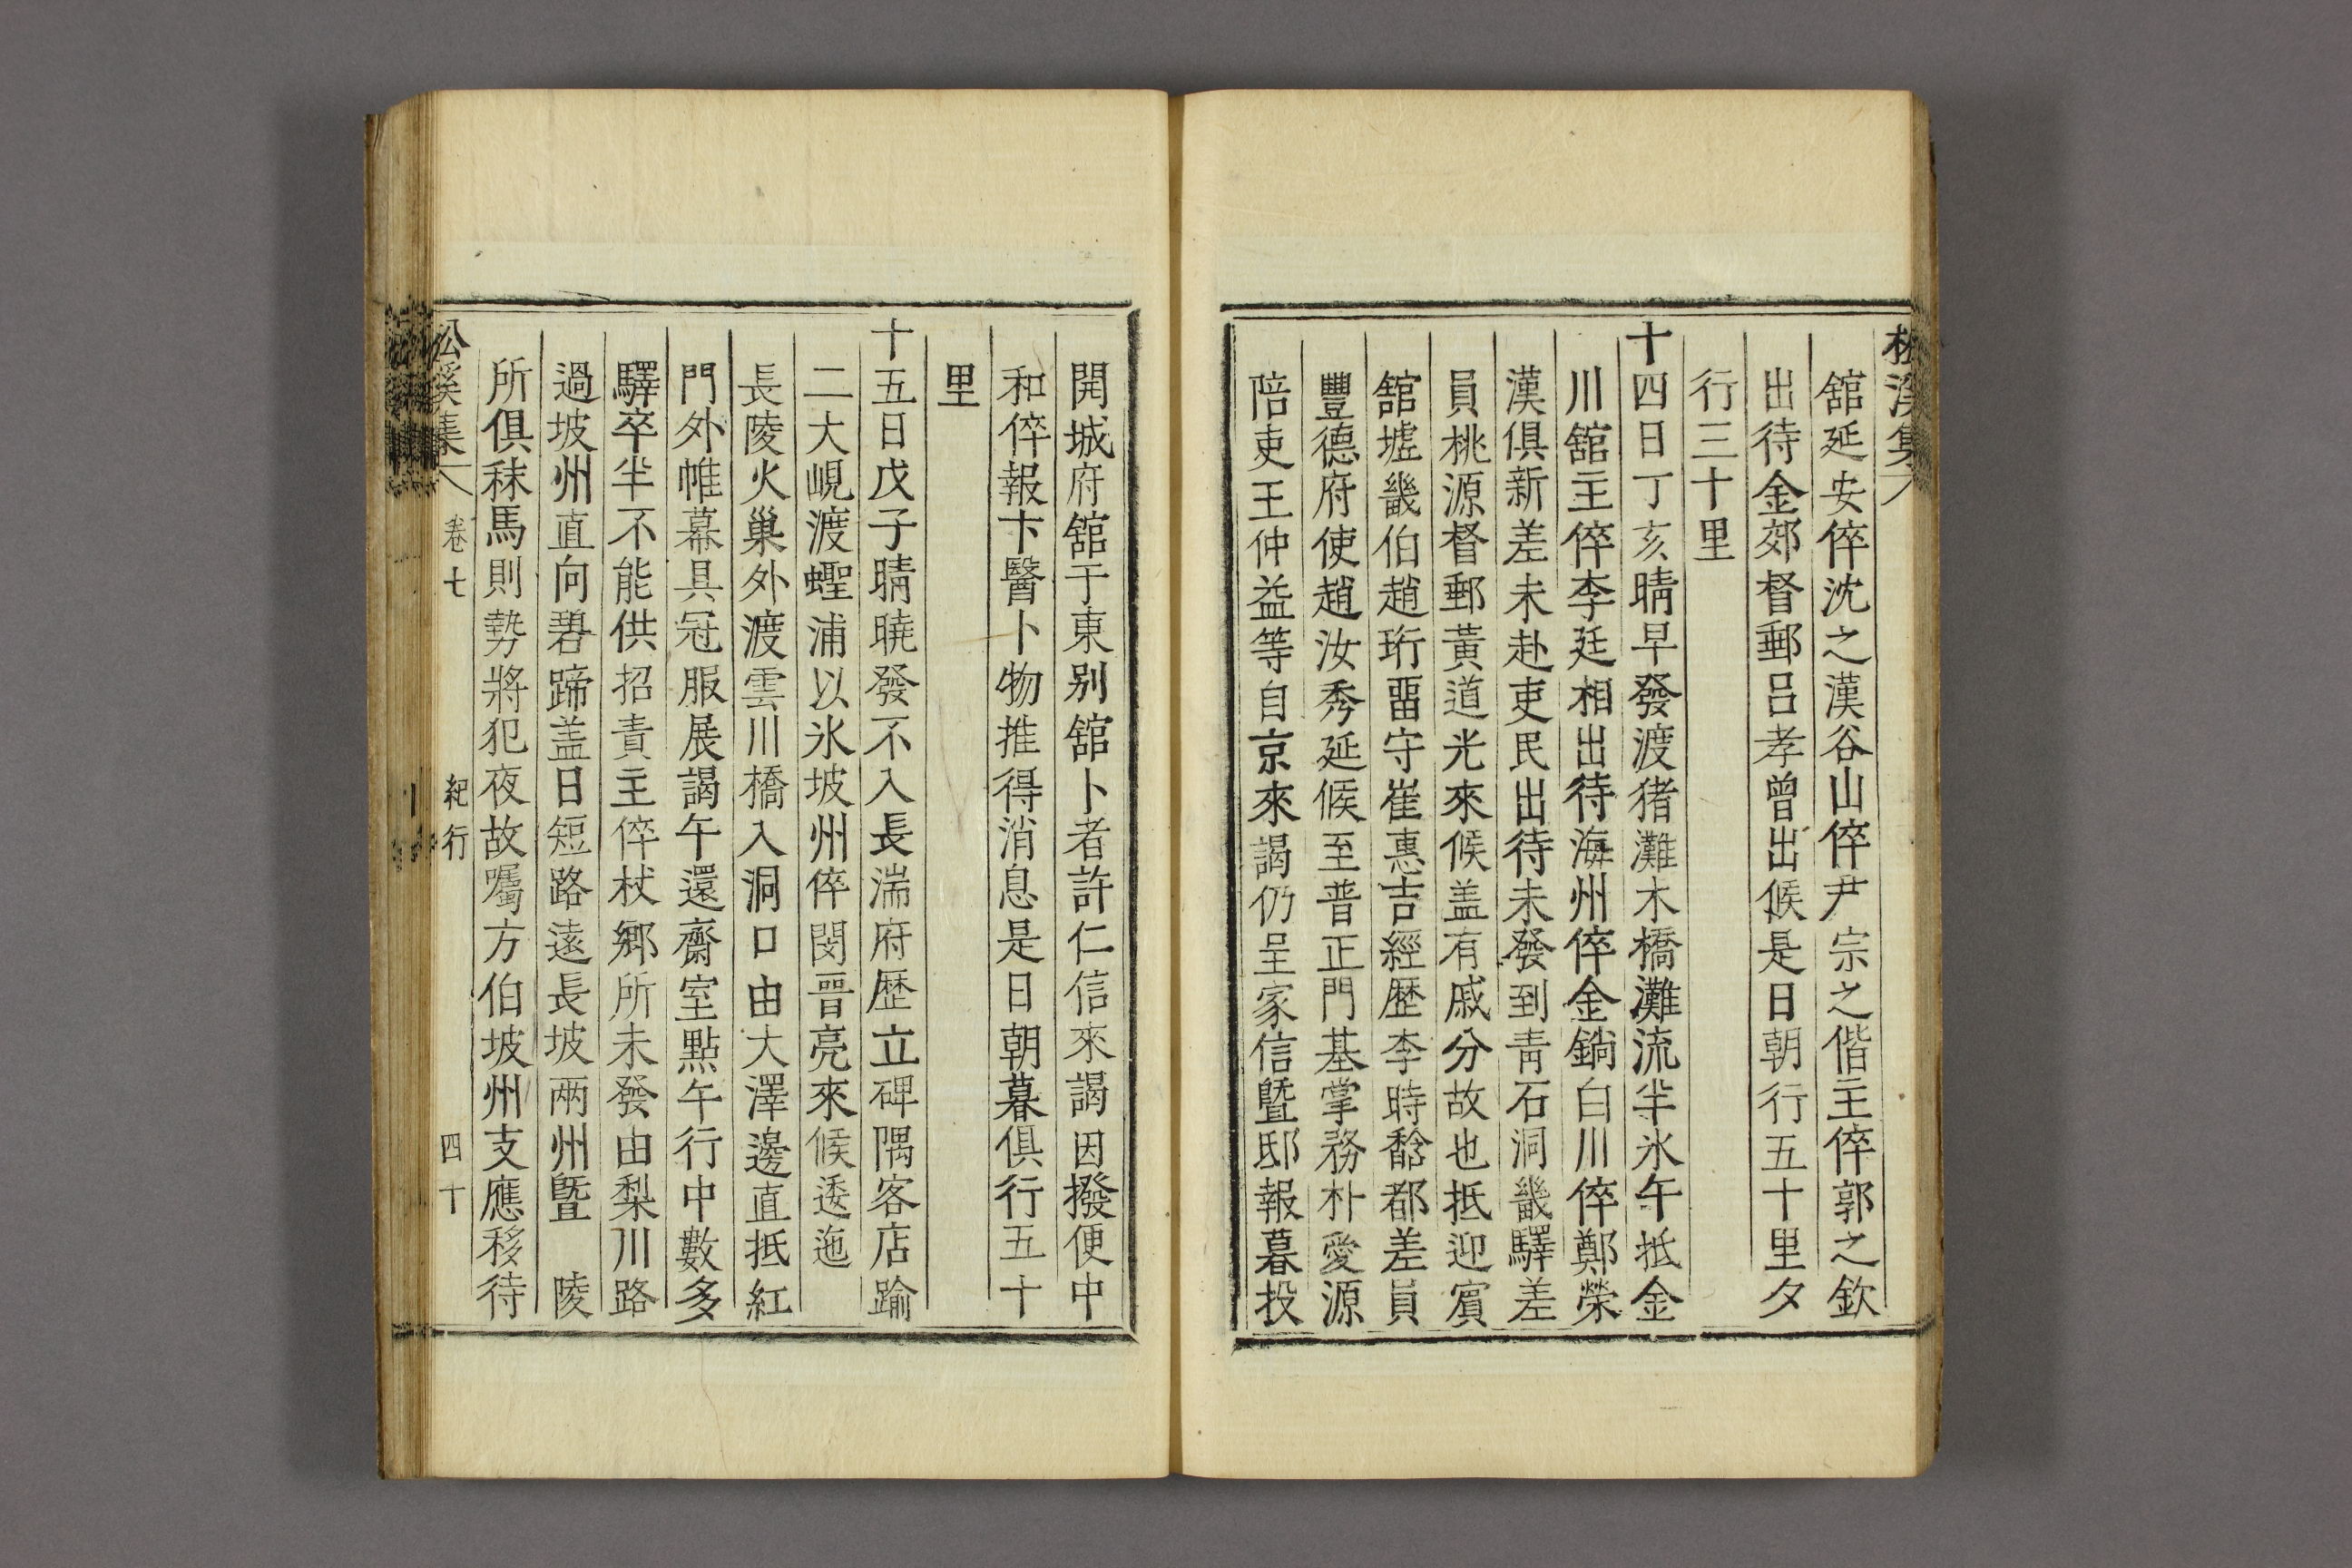 松溪集
舘延安倅沈之漢谷山倅尹宗之偕主倅郭之欽
出待金郊督郵呂孝曾出候是日朝行五十里夕
行三十里
十四日丁亥晴早發渡猪灘木橋灘流半氷午抵金
川舘主倅李廷相出待海州倅金鍋白川倅鄭榮
漢俱新差未赴吏民出待未發到靑石洞畿驛差
員桃源督郵黃道光來候盖有戚分故也抵迎賓
舘墟畿伯趙珩畱守崔惠吉經歷李時馠都差員
豐德府使趙汝秀延候至普正門基掌務朴愛源
陪吏王仲益等自京來謁仍呈家信曁邸報暮投
開城府舘于東別舘卜者許仁信來謁因撥便中
和倅報卞醫卜物推得消息是日朝暮俱行五十
里
十五日戊子晴曉發不入長湍府歷立碑隅客店踰
二大峴渡蟶浦以氷坡州倅閔晋亮來候逶迤
長陵火巢外渡雲川橋入洞口由大澤邊直抵紅
門外帷幕具冠服展謁午還齋室點午行中數多
驛卒半不能供招責主倅杖鄕所未發由梨川路
過坡州直向碧蹄盖日短路遠長坡兩州曁 陵
所俱秣馬則勢將犯夜故囑方伯坡州支應移待
松溪集 卷七 紀行 四十